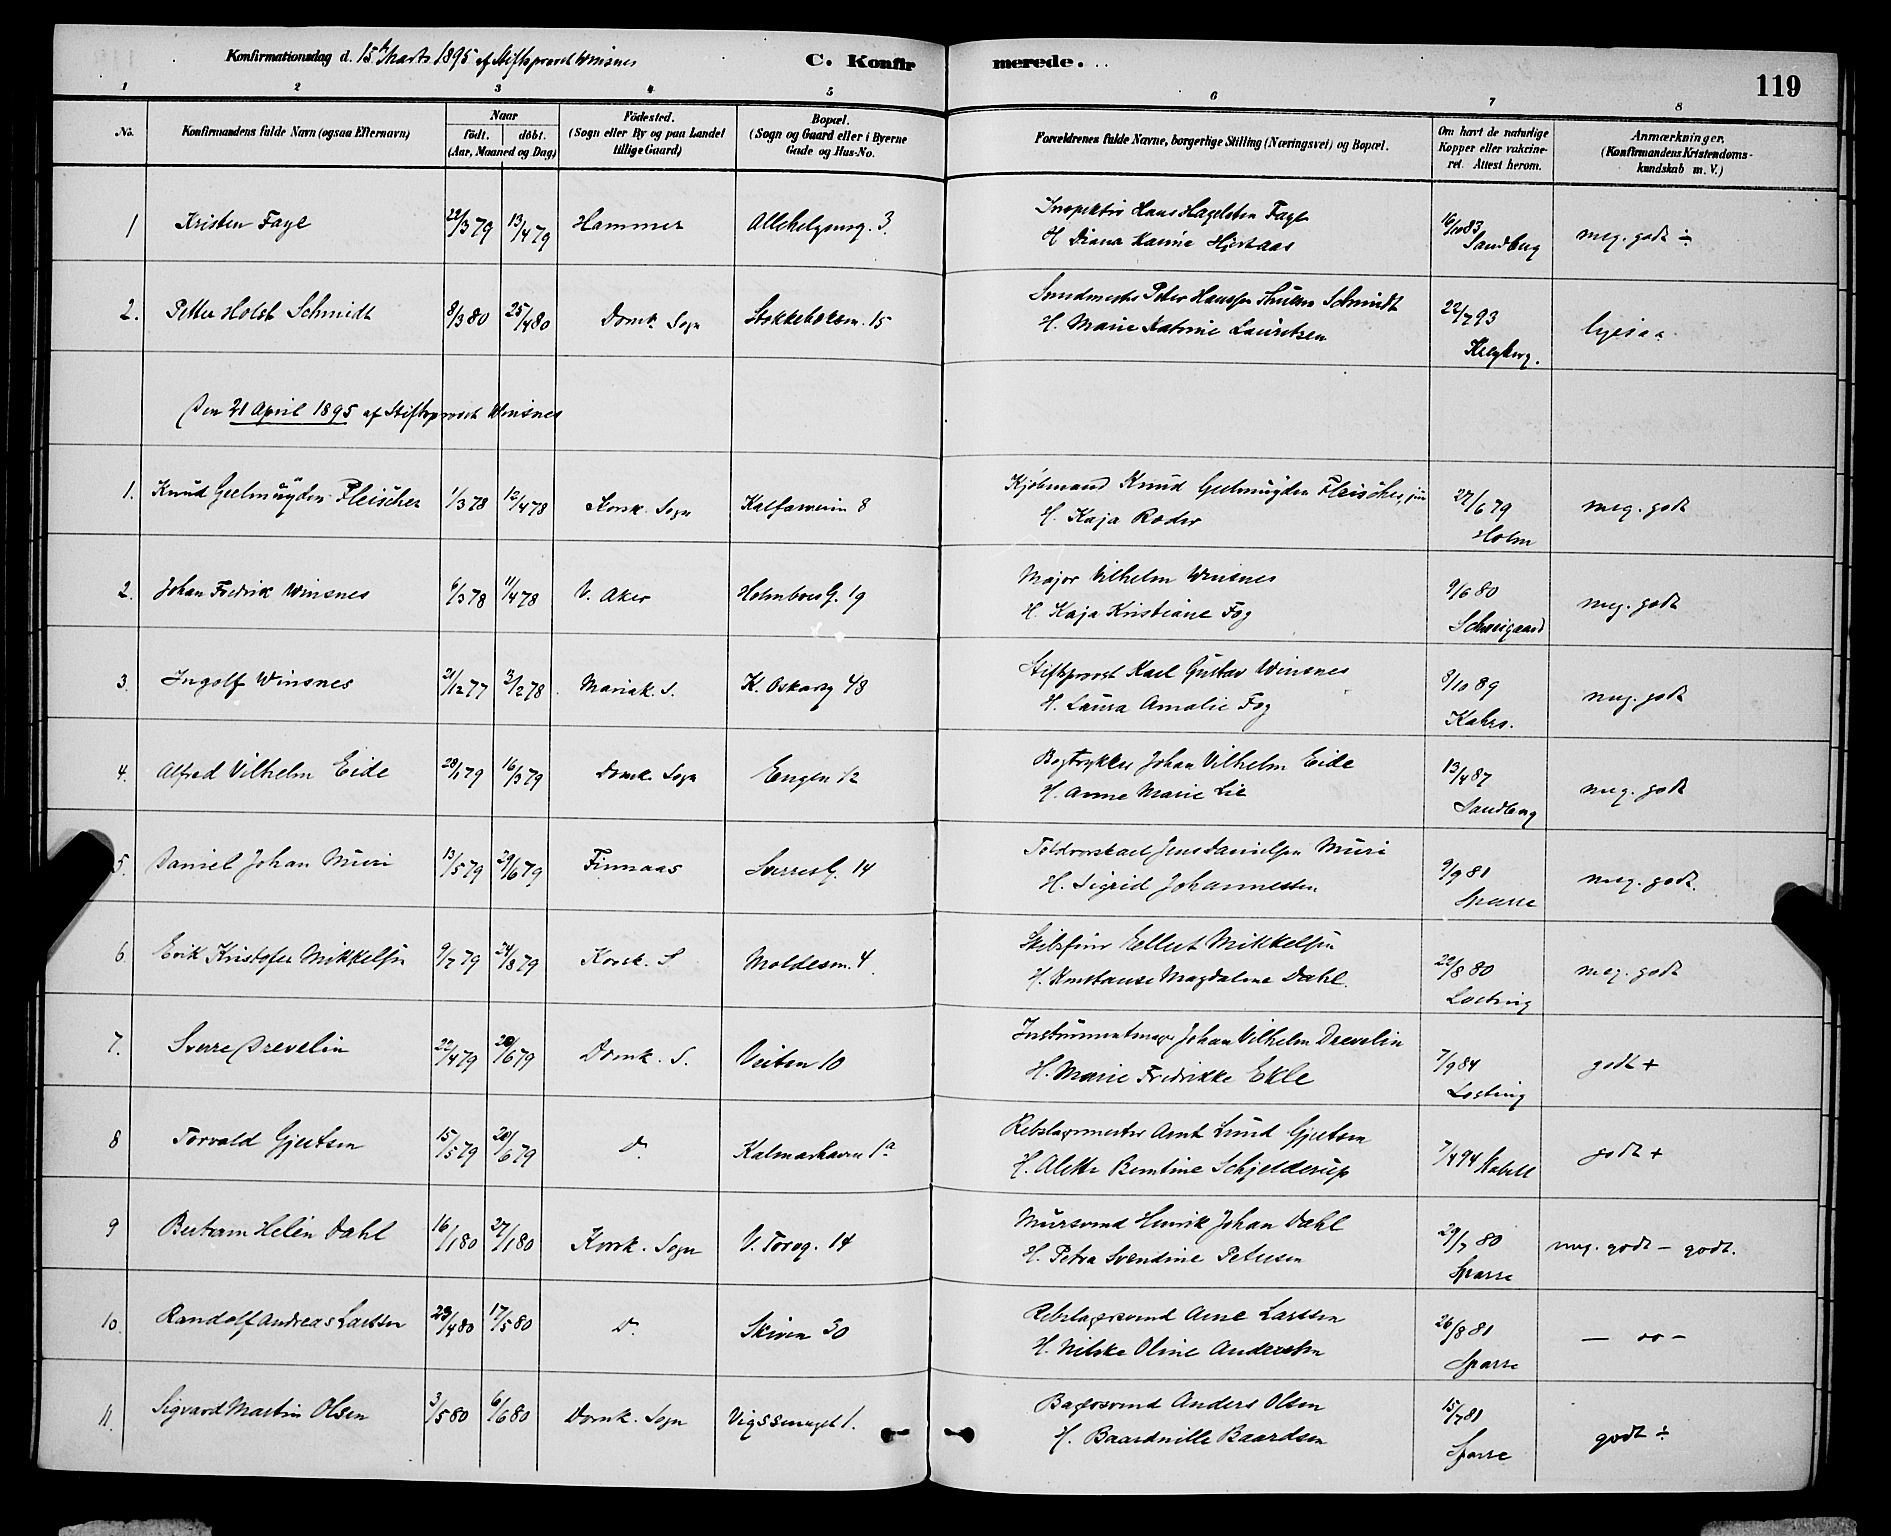 Konfirmationsdag d. 15de Marts 1895 af Stiftsprovst Winsnes
C. Konfirmerede.
119
1 2 3 4 5 6 7 8
No.
Konfirmandens fulde Navn (ogsaa Efternavn)
Naar
født. døbt.
(Aar, Maaned og Dag)
Fødested.
(Sogn eller By og paa Landet
tillige Gaard)
Bopæl.
(Sogn og Gaard eller i Byerne
Gade og Hus-No.
Forældrenes fulde Navne, borgerlige Stilling (Næringsvei) og Bopæl.
Om havt de naturlige
Kopper eller vakcine-
ret. Attest herom.
Anmærkninger.
(Konfirmandens Kristendoms-
kundskab m. V.)
1 Kristen Faye 22/3 79 13/4 79 Hammer Allehelgensg. 3.
Inspektør Hans Hagelsten Faye
H. Diana Karine Hjertaas
16/10 83
Sandberg
meg. godt ÷
2. Petter Holst Schmidt 8/3 80 25/4 80 Domk. Sogn Stokkehoksm. 15
Smedmester Peter Hanssen Schmidt
H. Marie Katrine Lauritsen
22/7 93
ligesaa
Den 21 April 1895 af Stiftsprovst Winsnes
1. Knud Geelmuyden Fleischer 1/3 78 12/4 78 Korsk. Sogn Kalfarveien 8
Kjøbmand Knud Geelmuyden Fleischer, jun
H. Kaja Roder
27/6 79
Holm
meg. godt
2. Johan Fredrik Winsnes 6/3 78 11/4 78 V. Aker Holmboes G. 19
Major Vilhelm Winsnes
H. Kaja Kristiane Fog
9/6 80
Schweigaard
meg. godt
3. Ingolf Winsnes 21/12 77 2/2 78 Mariak. S. K. Oskarsg 48
Stiftsprovst Karl Gustav Winsnes
H. Laura Amalie Fog
8/10 89
Kahrs.
meg. godt
4. Alfred Vilhelm Eide 28/1 79 16/3 79 Domk. Sogn Engen 12
Bogtrykker Johan Vilhelm Eide
H. Anne Marie Lie
13/4 87
Sandberg
meg. godt
5. Daniel Johan Muri 13/5 79 29/6 79 Finnaas Sverres G. 14
Toldoverskael Jens Danielsen Muri
H. Sigrid Johannessen
9/9 81
Sparre
meg. godt.
6. Erik Kristofer Mikkelsen 9/7 79 24/8 79 Korsk. S Moldesm. 4.
Skibsfører Ellert Mikkelsen
H. Konstanse Magdalene Dahl.
22/8 80
Loeting
meg. godt
7. Sverre Drevelin 22/4 79 20/6 79 Domk. S. Veiten 10
Instrumentmager Johan Vilhelm Drevelin
H. Marie Fredrikke Ekle
7/9 84
Loeting
godt +
8 Torvald Gjertsen 15/5 79 20/6 79 D. Kalmarhaven 1a
Rebslagermester Arnt Lund Gjertsen
H. Alette Bentine Schjelderup
7/4 94
godt +
9 Bertram Helén Dahl 16/1 80 27/1 80 Korsk. Sogn V. Torvg. 14
Mursvend Henrik Johan Dahl
H. Petra Svendine Petersen
29/7 80
Sparre
meg. godt - godt.
10. Randolf Andreas Larsen 23/4 80 17/5 80 D. Skiven 30
Rebslagersvend Arne Larssen
H. Nilske Oline Andersen
26/8 81
Sparre
— oo —
11. Sigvard Martin Olsen 3/5 80 6/6 80 Domk. Sogn Vigssmuget 1.
Bagersvend Anders Olsen
H. Baardnille Baardsen
15/7 81
Sparre
godt ÷